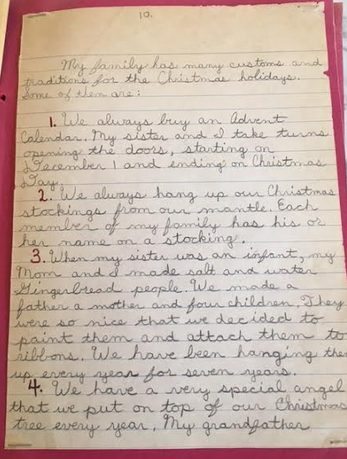 10.
My family has many customs and
traditions for the Christmas holidays.
Some of them are:
1. We always buy an Advent
Calendar. My sister and I take turns
opening the doors, starting on
December 1 and ending on Christmas
Day.
2. We always hang up our Christmas
stockings from our mantle. Each
member of my family has his or
her name on a stocking.
3. When my sister was an infant, my
Mom and I made salt and water
Gingerbread people. We made a
father a mother and four children. They
were so nice that we decided to
paint them and attach them to
ribbons. We have been hanging them
up every year for seven years.
4. We have a very special angel
that we put on top of our Christmas
tree every year. My grandfather